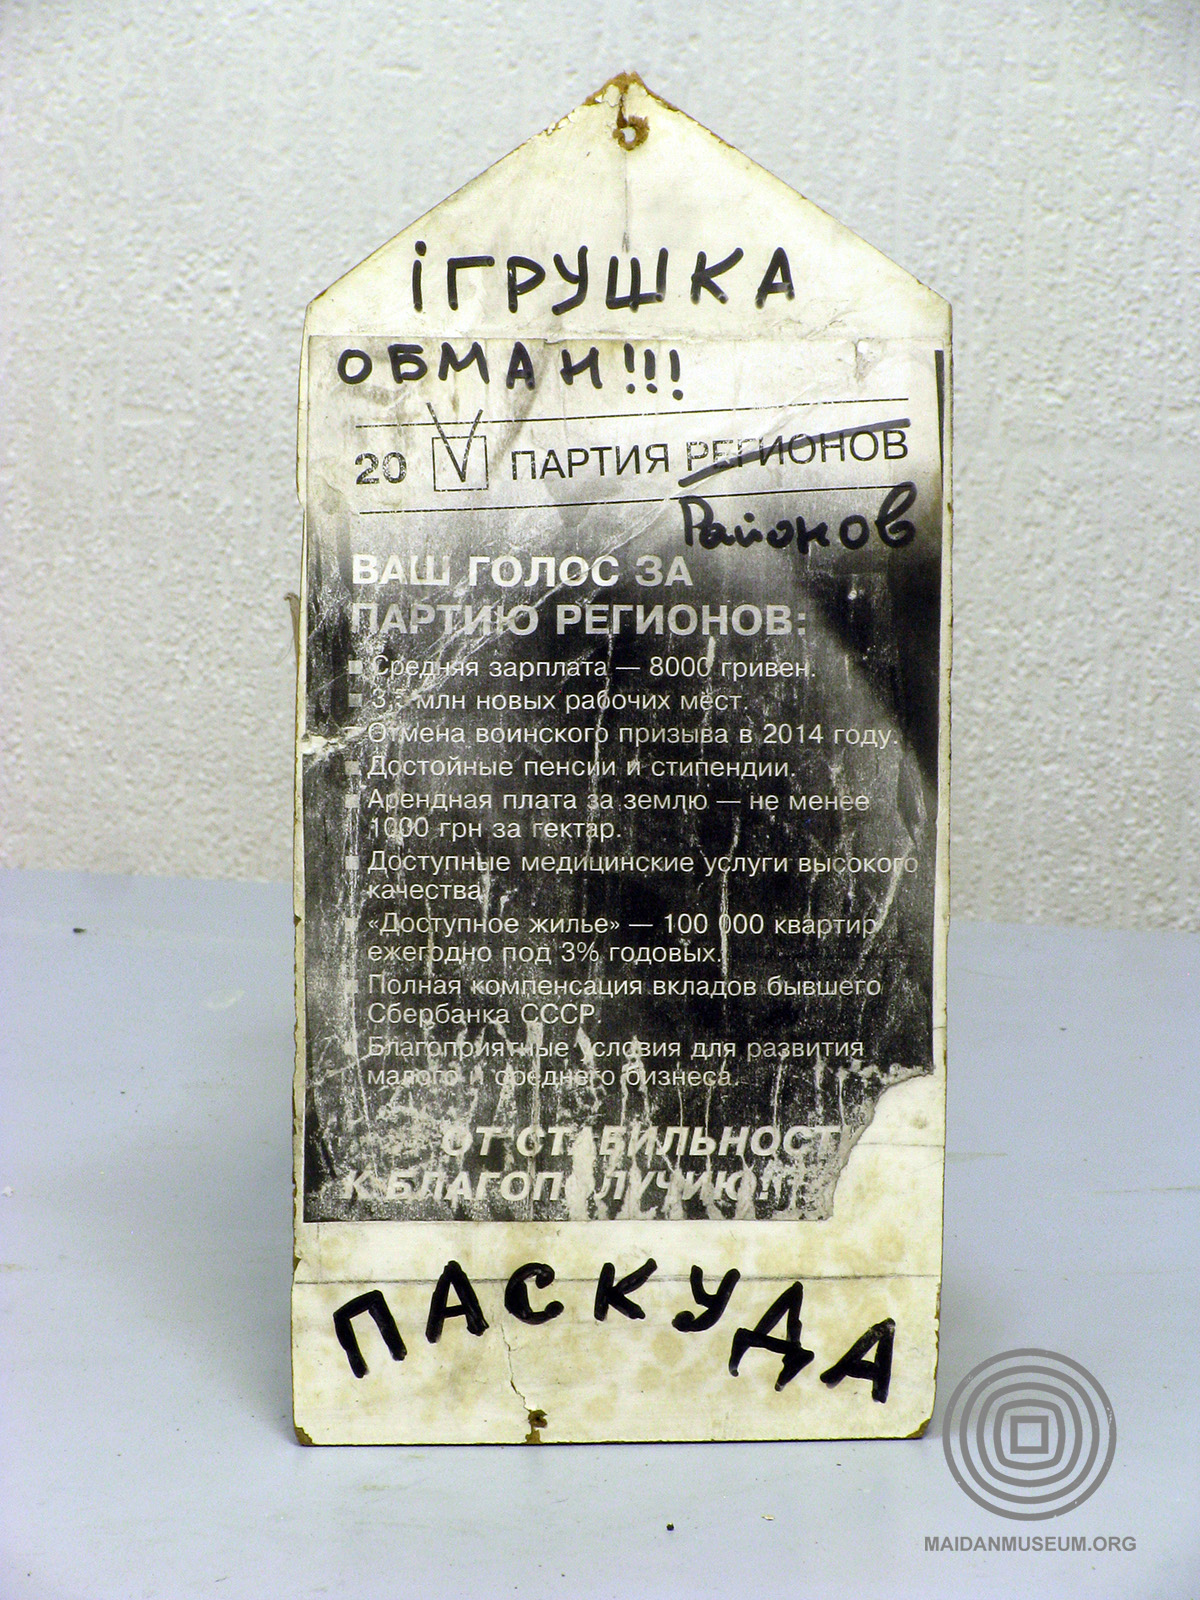 ІГРУШКА
ОБМАН!!!
20 ПАРТИЯ РЕГИОНОВ
Районов
ВАШ ГОЛОС ЗА
ПАРТИЮ РЕГИОНОВ:
Средняя зарплата — 8000 гривен.
3,5 млн новых рабочих мест.
Отмена воинского призыва в 2014 году.
Достойные пенсии и стипендии.
Арендная плата за землю — не менее
1000 грн за гектар.
Доступные медицинские услуги высокого
качества.
«Доступное жилье» — 100 000 квартир
ежегодно под 3% годовых.
Полная компенсация вкладов бывшего
Сбербанка СССР.
Благоприятные условия для развития
малого и среднего бизнеса.
ОТ СТАБИЛЬНОСТ
К БЛАГОПОЛУЧИЮ!
ПАСКУДА
MAIDANMUSEUM.ORG